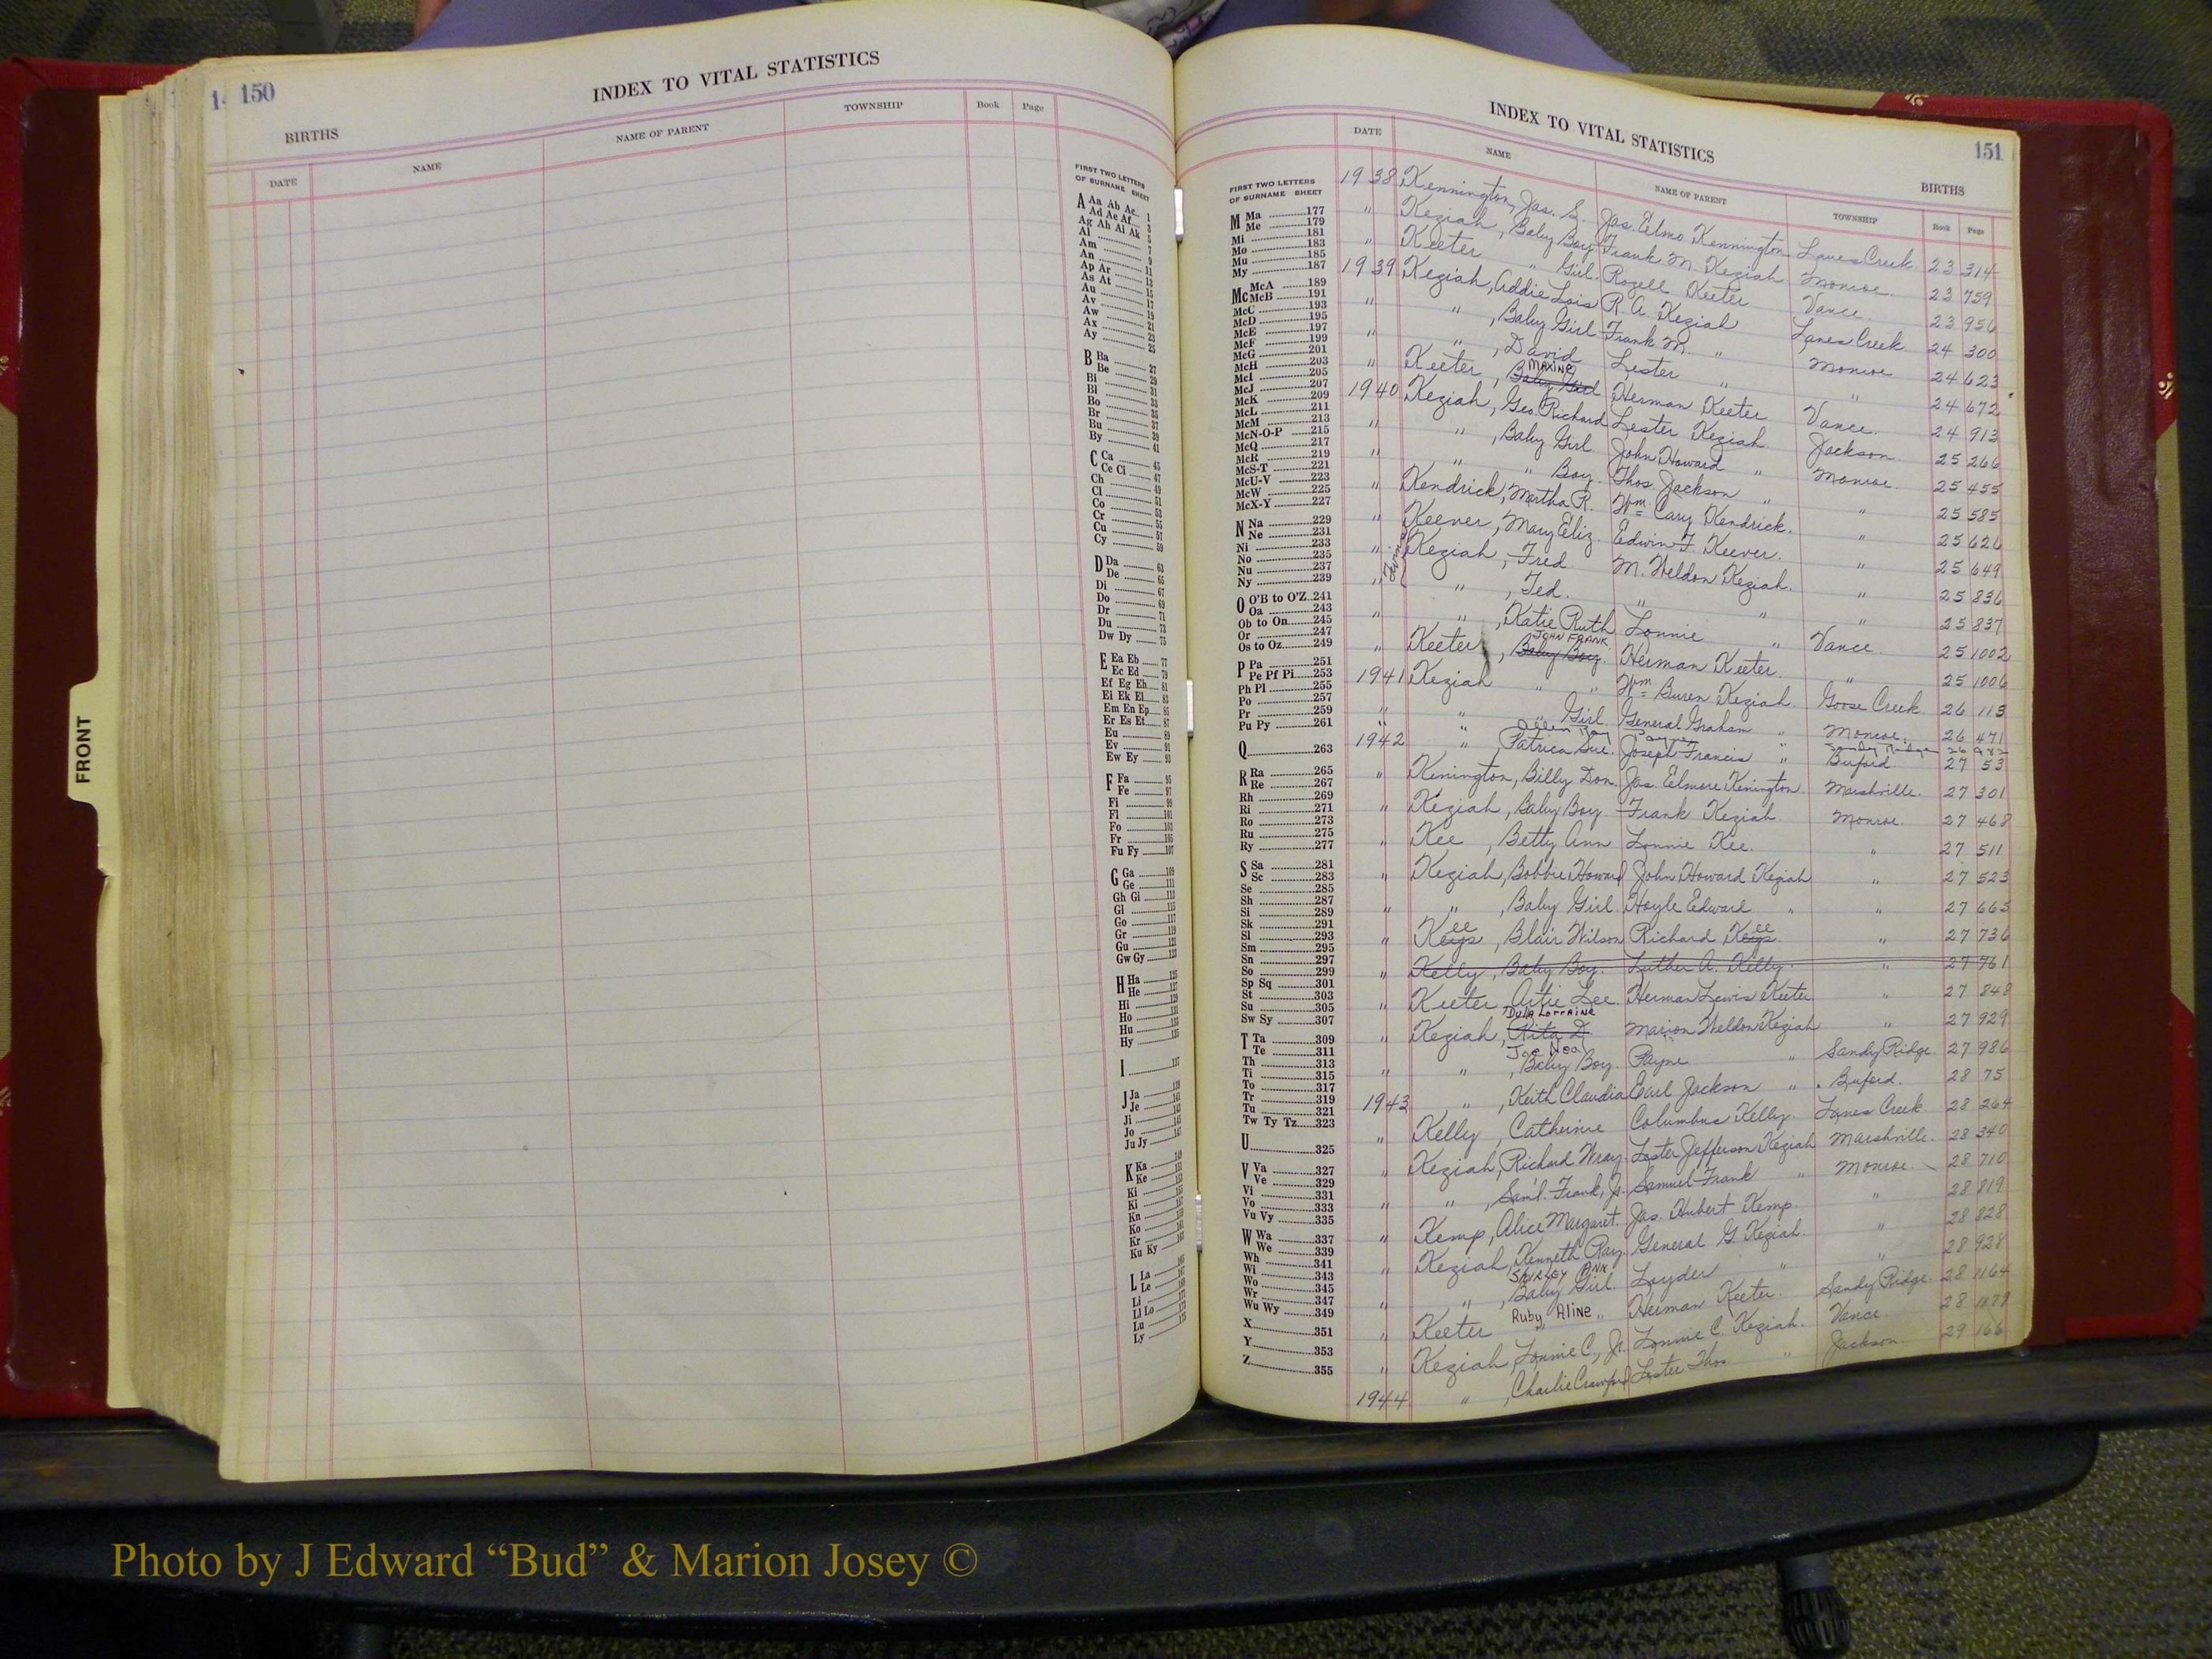 150
INDEX TO VITAL STATISTICS
BIRTHS
DATE NAME NAME OF PARENT TOWNSHIP Book Page
FIRST TWO LETTERS
OF SURNAME SHEET
A Aa Ab Ac 1
Ad Ae Af 3
Ag Ah Ai Ak 5
Al 7
Am 9
An 11
Ap Ar 13
As At 15
Au 17
Av 19
Aw 21
Ax 23
Ay 25
B Ba 27
Be 29
Bi 31
Bl 33
Bo 35
Br 37
Bu 39
By 41
C Ca 45
Ce Ci 47
Ch 49
Cl 51
Co 53
Cr 55
Cu 57
Cy 59
D Da 63
De 65
Di 67
Do 69
Dr 71
Du 73
Dw Dy 75
E Ea Eb 77
Ec Ed 79
Ef Eg Eh 81
Ei Ek El 83
Em En Ep 85
Er Es Et 87
Eu 89
Ev 91
Ew Ey 93
F Fa 95
Fe 97
Fi 99
Fl 101
Fo 103
Fr 105
Fu Fy 107
G Ga 109
Ge 111
Gh Gi 113
Gl 115
Go 117
Gr 119
Gu 121
Gw Gy 123
H Ha 125
He
Hi
Ho
Hu
Hy 135
I 137
J Ja
Je
Ji
Jo
Ju Jy
K Ka
Ke
Ki
Kn
Ko
Kr
Ku Ky
L La
Le
Li
Ll Lo
Lu
Ly
INDEX TO VITAL STATISTICS 151
BIRTHS
DATE NAME NAME OF PARENT TOWNSHIP Book Page
FIRST TWO LETTERS
OF SURNAME SHEET
M Ma 177
Me 179
Mi 181
Mo 183
Mu 185
My 187
Mc McA 189
McB 191
McC 193
McD 195
McE 197
McF 199
McG 201
McH 203
McI 205
McJ 207
McK 209
McL 211
McM 213
McN-O-P 215
McQ 217
McR 219
McS-T 221
McU-V 223
McW 225
McX-Y 227
N Na 229
Ne 231
Ni 233
No 235
Nu 237
Ny 239
O O'B to O'Z 241
Oa 243
Ob to On 245
Or 247
Os to Oz 249
P Pa 251
Pe Pf Pi 253
Ph Pl 255
Po 257
Pr 259
Pu Py 261
Q 263
R Ra 265
Re 267
Rh 269
Ri 271
Ro 273
Ru 275
Ry 277
S Sa 281
Sc 283
Se 285
Sh 287
Si 289
Sk 291
Sl 293
Sm 295
Sn 297
So 299
Sp Sq 301
St 303
Su 305
Sw Sy 307
T Ta 309
Te 311
Th 313
Ti 315
To 317
Tr 319
Tu 321
Tw Ty Tz 323
U 325
V Va 327
Ve 329
Vi 331
Vo 333
Vu Vy 335
W Wa 337
We 339
Wh 341
Wi 343
Wo 345
Wr 347
Wu Wy 349
X 351
Y 353
Z 355
1938 Kennington, Jas. S. Jas. Elmo Kennington Lanes Creek 23 314
" Keziah, Baby Boy Frank M. Keziah Monroe 23 759
" Keeter " Girl Rozell Keeter Vance 23 956
1939 Keziah, Addie Lois R. A. Keziah Lanes Creek 24 300
" " , Baby Girl Frank M. " Monroe 24 623
" " , David Lester " " 24 672
" Keeter, Baby Girl MAXINE Herman Keeter Vance 24 913
1940 Keziah, Geo. Richard Lester Keziah Jackson 25 266
" " , Baby Girl John Howard " Monroe 25 455
" " " Boy Thos. Jackson " " 25 585
" Kendrick, Martha R. Wm Cary Kendrick " 25 626
" Keever, Mary Eliz. Edwin F. Keever " 25 649
" Twins Keziah, Fred M. Weldon Keziah " 25 836
" " , Ted " " " 25 837
" " , Katie Ruth Lonnie " Vance 25 1002
" Keeter, Baby Boy JOHN FRANK Herman Keeter " 25 1006
1941 Keziah " " Wm Buren Keziah Goose Creek 26 113
" " " Girl General Graham " Monroe 26 471
" Payne Sandy Ridge
1942 " , Patrica Sue Joseph Francis " Buford 27 53
" Kinington, Billy Don Jas. Elmore Kinington Marshville 27 301
" Keziah, Baby Boy Frank Keziah Monroe 27 468
" Kee, Betty Ann Lonnie Kee " 27 511
" Keziah, Bobbie Howard John Howard Keziah " 27 523
" " , Baby Girl Hoyle Edward " " 27 665
" Kee, Blair Wilson Richard Kee " 27 736
" Kelly, Baby Boy Luther A. Kelly " 27 761
" Keeter, Artie Lee Herman Lewis Keeter " 27 848
" Keziah, Rita D. DULA LORRAINE Marion Weldon Keziah " 27 929
" " , Baby Boy Joe Neal Payne " Sandy Ridge 27 986
1943 " , Keith Claudia Earl Jackson " Buford 28 75
" Kelly, Catherine Columbus Kelly Lanes Creek 28 264
" Keziah, Richard Wray Lester Jefferson Keziah Marshville 28 340
" " , Sam'l. Frank, Jr. Samuel Frank " Monroe 28 710
" Kemp, Alice Margaret Jas. Hubert Kemp " 28 819
" Keziah, Kenneth Ray General G. Keziah " 28 828
" " , Baby Girl SHIRLEY ANN Loyder " " 28 928
" Keeter Ruby Aline " Herman Keeter Sandy Ridge 28 1164
" Keziah, Lonnie C., Jr. Lonnie C. Keziah Vance 28 1179
1944 " , Charlie Crawford Lester Thos. " Jackson 29 166
FRONT
Photo by J Edward “Bud” & Marion Josey ©